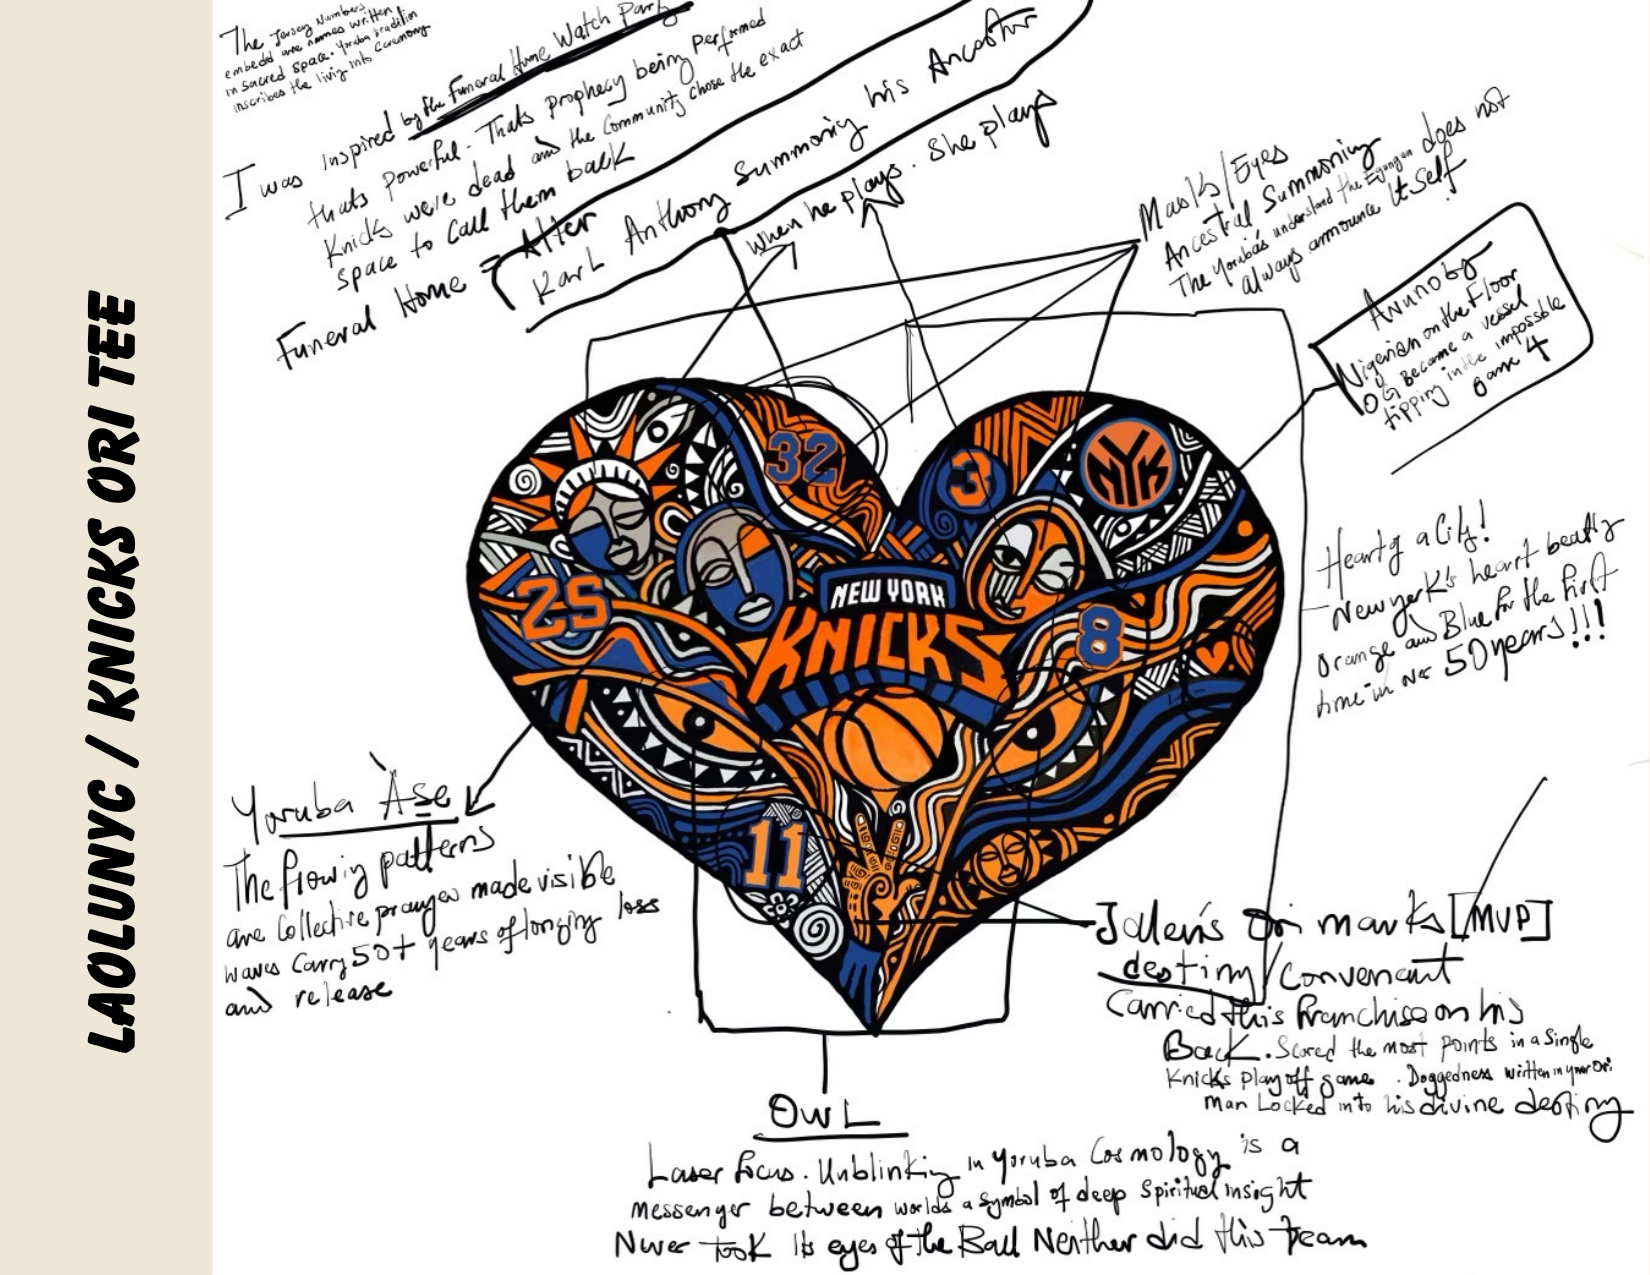 LAOLUNYC / KNICKS ORI TEE
The Jersey Numbers
embedd are names written
in sacred space. Yoruba tradition
inscribes the livig into ceremony
I was inspired by the Funeral Home Watch Party
thats powerful. Thats prophecy being performed
Knicks were dead and the Community chose the exact
space to call them back
Funeral Home = Alter
Karl Anthony Summonig his Ancestor
when he plays. She plays
Masks/Eyes
Ancestral Summoning
The Yoruba's understand the Egungun does not
always announce itself
Anunoby
Nigerian on the Floor
OG Became a vessel
tipping in the impossible
game 4
Heart of a City!
New york's heart beating
orange and Blue for the first
time in over 50 years!!!
32
3
NYK
25
NEW YORK
KNICKS
8
11
Yoruba Àse
The flowig patterns
are collective prayers made visible
waves carry 50+ years of longing loss
and release
Jalen's Ori marks [MVP]
destiny/Convenent
Carried this franchise on his
Back. Scored the most points in a single
Knicks playoff game. Doggedness written in your Ori
man Locked into his divine destiny
OWL
Laser focus. Unblinkig in Yoruba Cosmology is a
messenger between worlds a symbol of deep spiritual insight
Never took its eyes of the Ball Neither did this Team